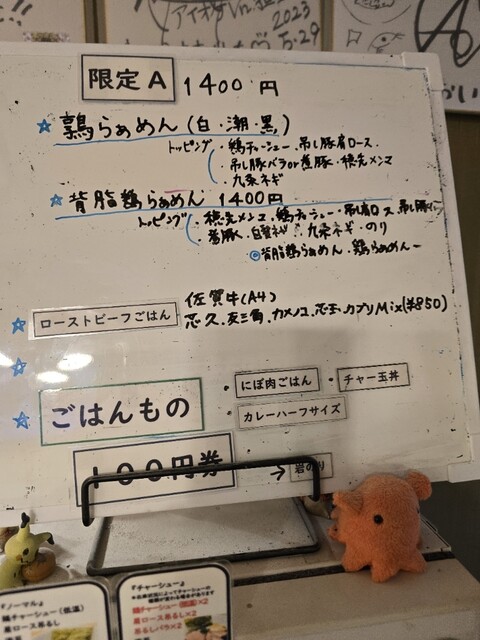 アイオケ
2023
5.29
限定A 1400円
☆鶉らぁめん(白・潮・黒)
トッピング 鶏チャーシュー・吊し豚肩ロース・
吊し豚バラor煮豚・穂先メンマ
九条ネギ
☆背脂鶏らぁめん 1400円
トッピング 穂先メンマ、鶏チャーシュー・吊し肩ロース
煮豚、白髪ネギ、九条ネギ・のり
◎背脂鶏らぁめん、鶏らぁめん
佐賀牛(A4)
☆ ローストビーフごはん 芯久、友三角、カメノコ、芯玉、カブリMix(¥850)
☆
☆ ごはんもの ・にぼ肉ごはん ・チャー玉丼
・カレーハーフサイズ
100円券 → 岩のり
『ノーマル』
鶏チャーシュー(低温)
肩ロース吊るし
『チャーシュー』
鶏チャーシュー(低温)×2
肩ロース吊るし×2
吊るしバラ×2